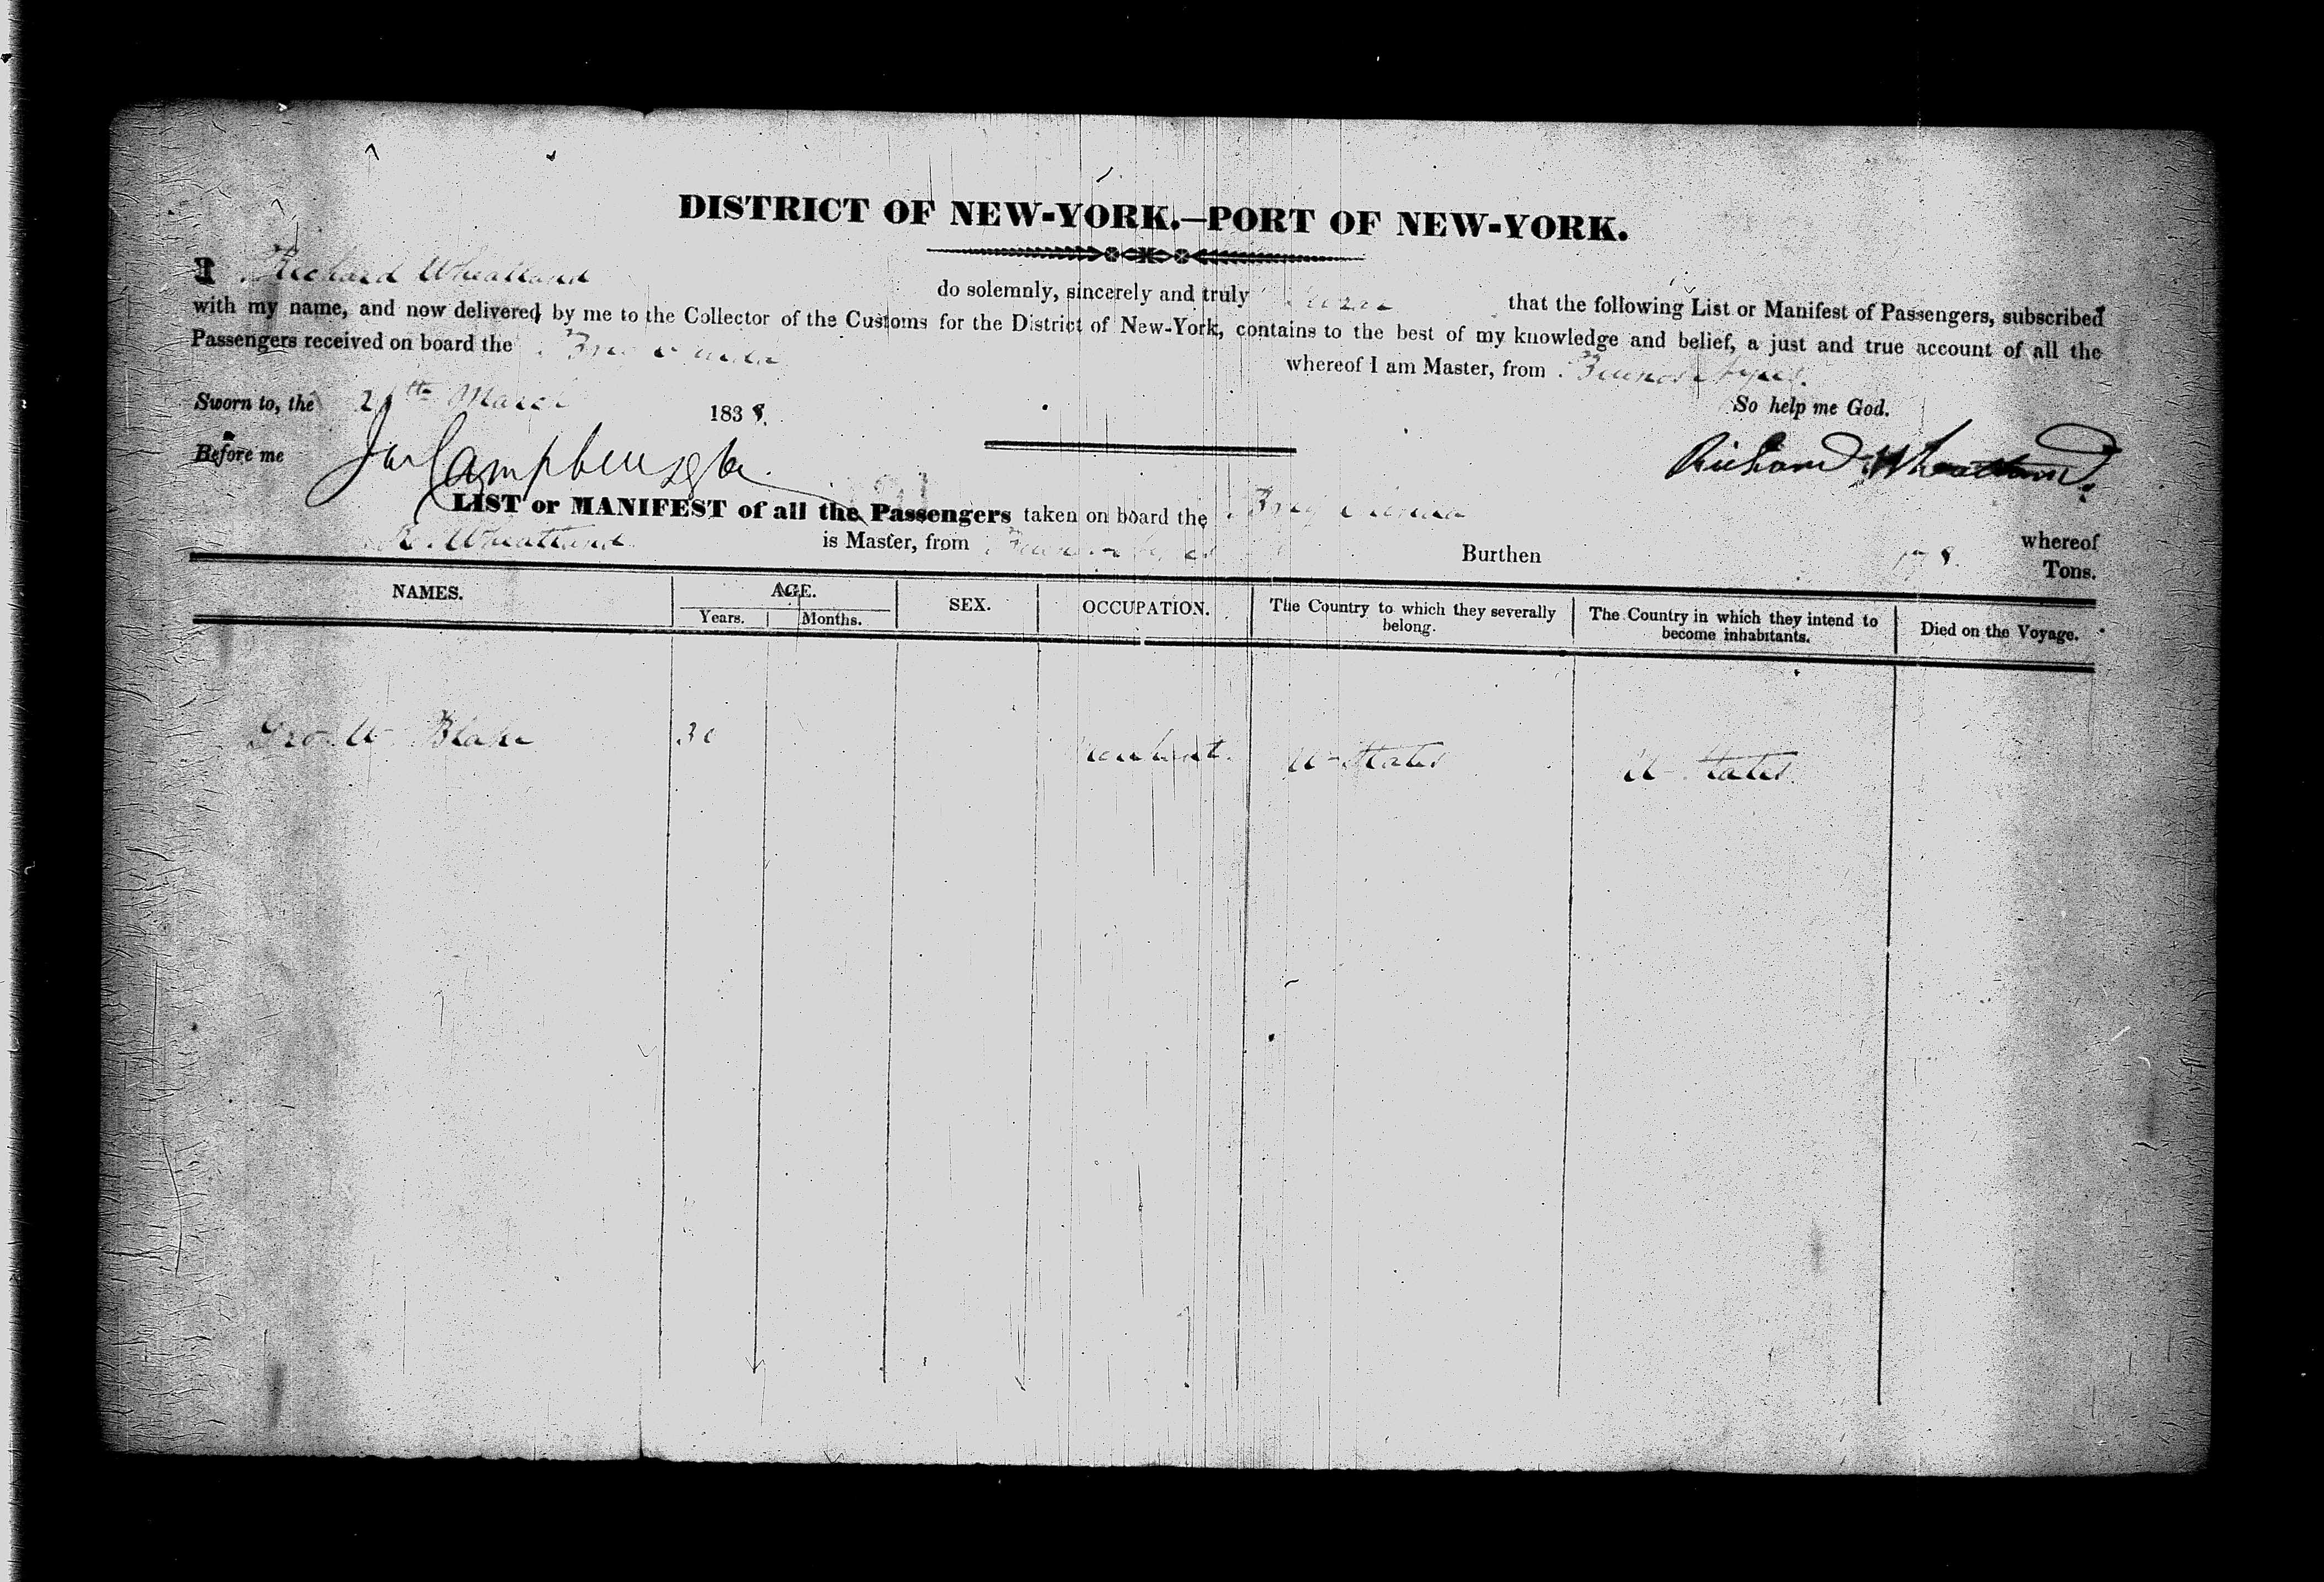 DISTRICT OF NEW-YORK.—PORT OF NEW-YORK.
I Richard Wheatland do solemnly, sincerely and truly that the following List or Manifest of Passengers, subscribed
with my name, and now delivered by me to the Collector of the Customs for the District of New-York, contains to the best of my knowledge and belief, a just and true account of all the
Passengers received on board the Brig whereof I am Master, from Buenos Ayres.
Sworn to, the th March 1838.
So help me God.
Before me
Richard Wheatland.
LIST or MANIFEST of all the Passengers taken on board the Brig whereof
R. Wheatland is Master, from Buenos Ayres Burthen Tons.
NAMES. AGE. SEX. OCCUPATION. The Country to which they severally belong. The Country in which they intend to become inhabitants. Died on the Voyage.
Years. Months.
Geo. W. Blake 30 Merchant. U-States U-States